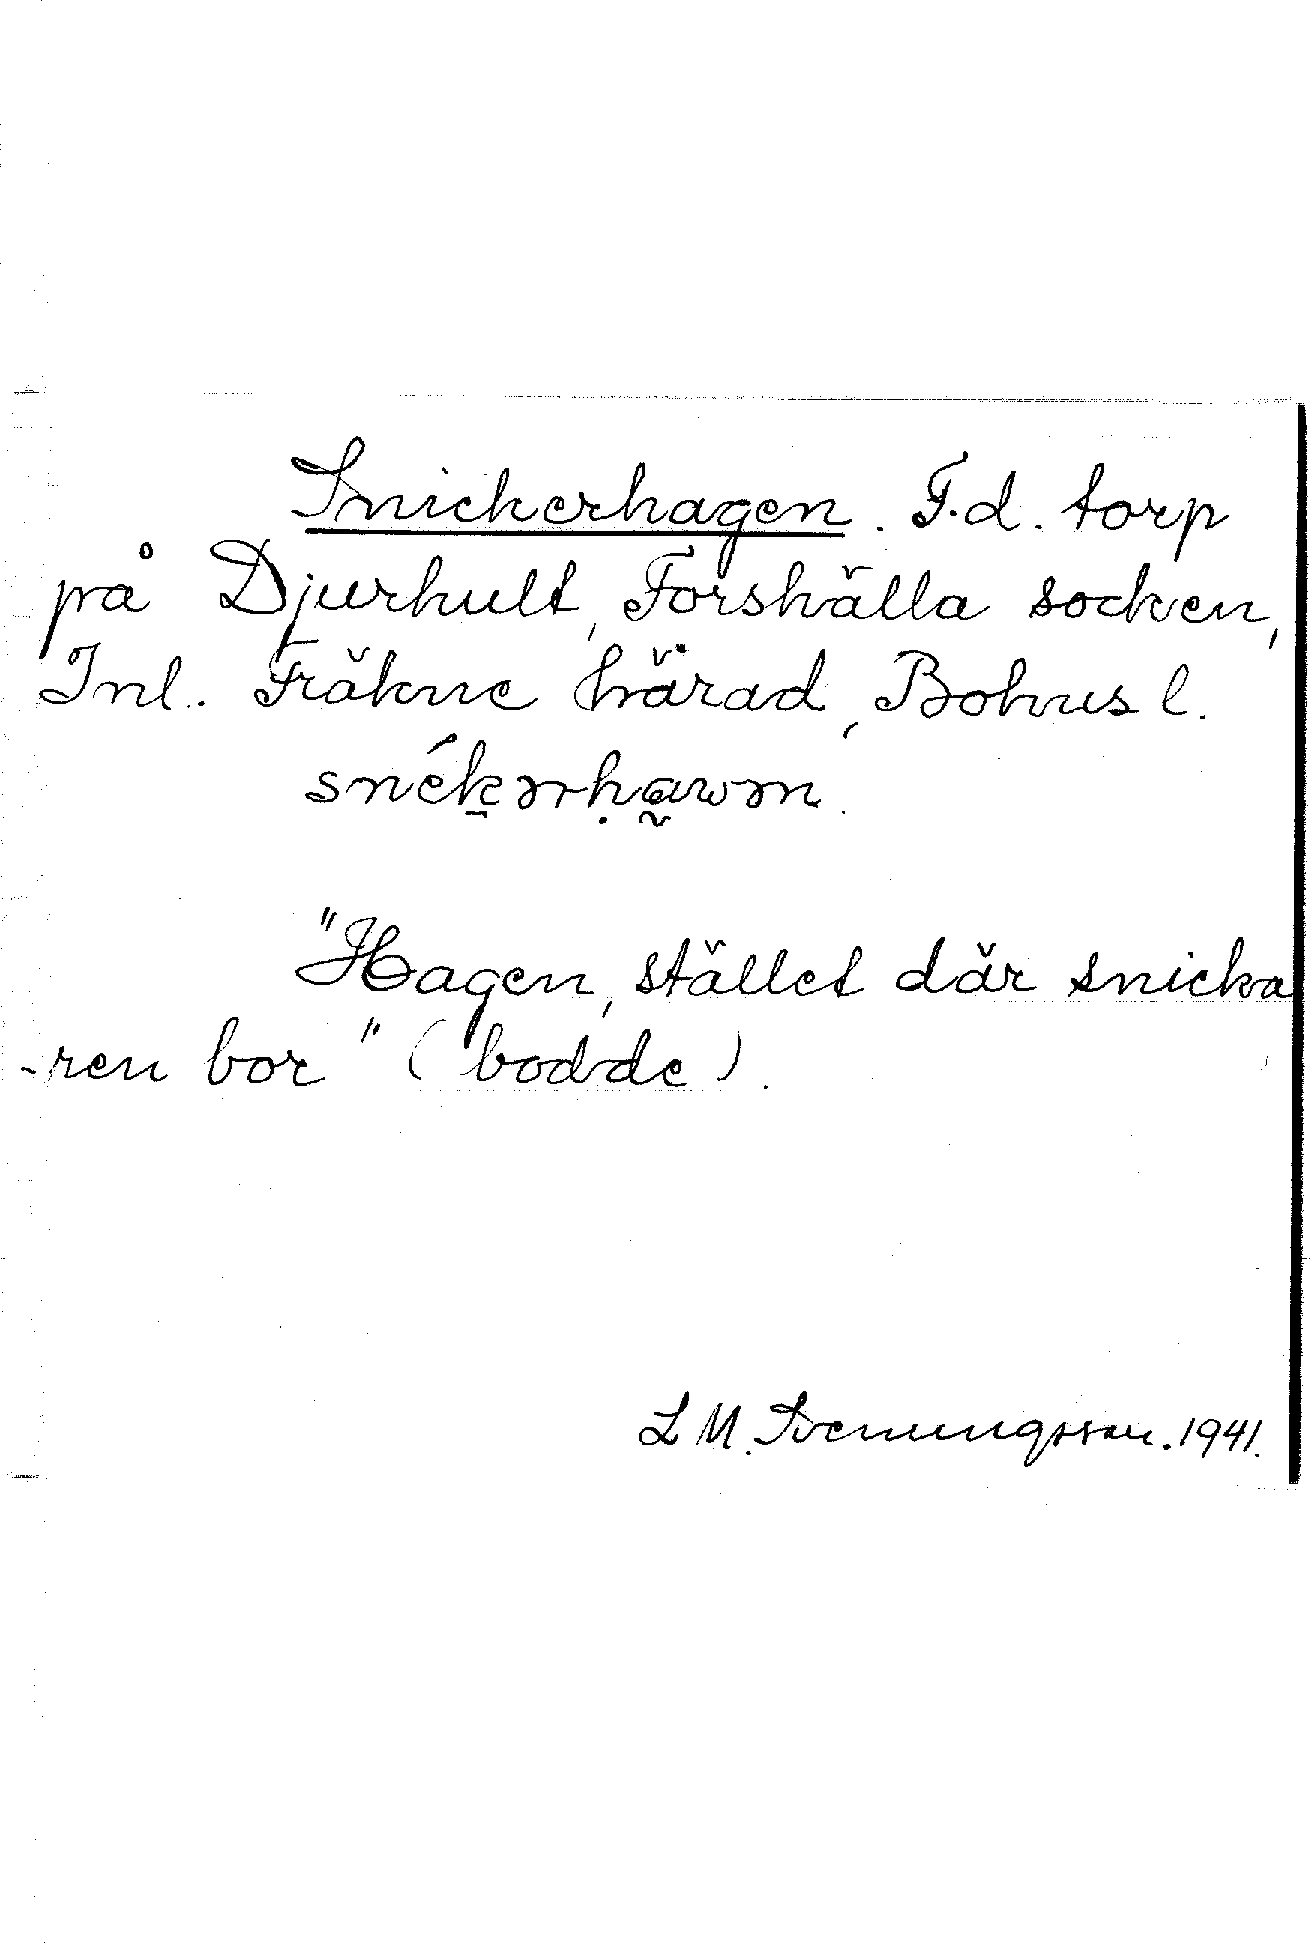 Snickerhagen. F.d. torp
på Djurhult, Forshälla socken,
Inl. Fräkne härad, Bohus l.
"Hagen, stället där snicka
-ren bor" (bodde).
L M. Svenungsson. 1941.